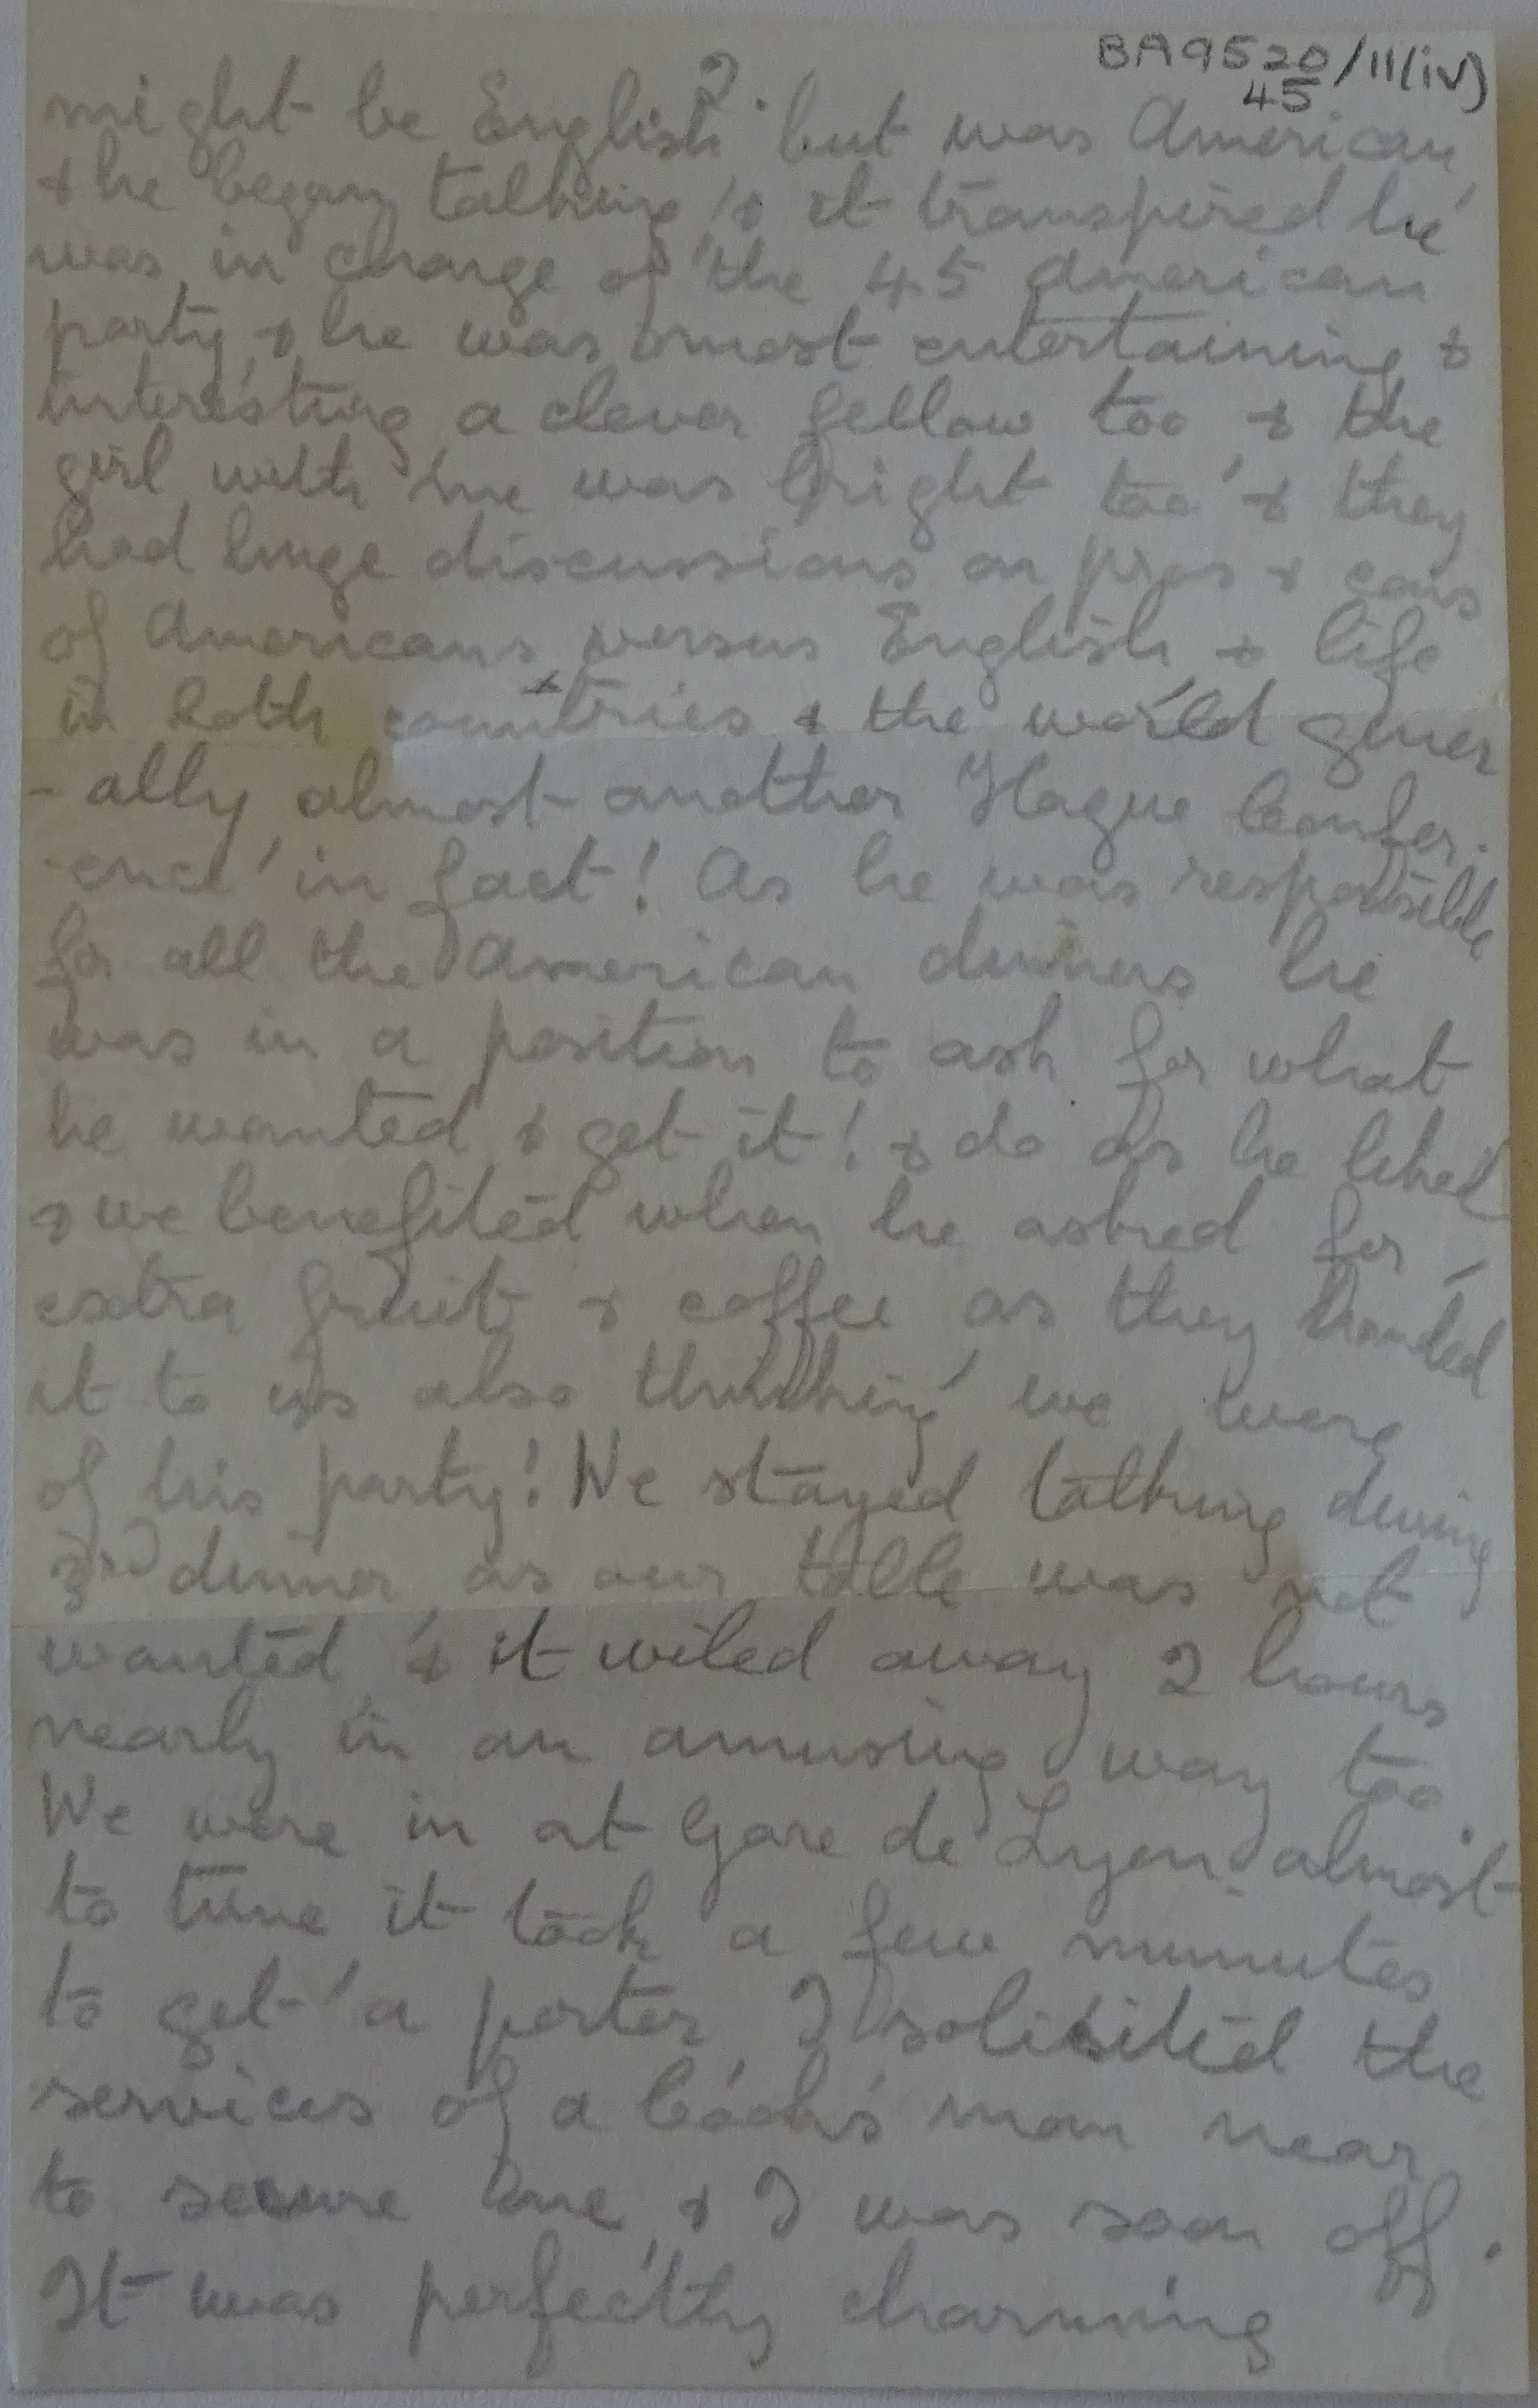 BA9520/11(iv)
45
might be English? but was American
& he began talking & it transpired he
was in charge of the 45 American
party & he was most entertaining &
interesting a clever fellow too & the
girl with me was bright too & they
had huge discussions on pros & cons
of Americans versus English & life
in both countries & the world gener
-ally almost another Hague Confer-
ence' in fact! As he was responsible
for all the American dinners he
was in a position to ask for what
he wanted & get it! & do as he liked
& we benefited when he asked for
extra fruit & coffee as they handed
it to us also thinking we were
of his party! We stayed talking during
3rd dinner as our table was not
wanted & it wiled away 2 hours
nearly in an amusing way too.
We were in at Gare de Lyon almost
to time it took a few minutes
to get a porter I solicited the
services of a Cook's man near
to secure one & I was soon off.
It was perfectly charming